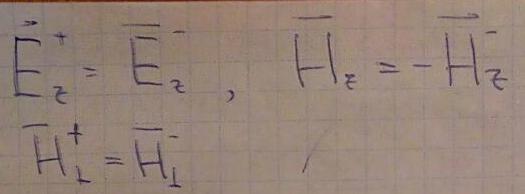 E⃗⁺_z = E̅⁻_z , H̅_z = -H⃗⁻_z
H̅⁺_⊥ = H̅⁻_⊥